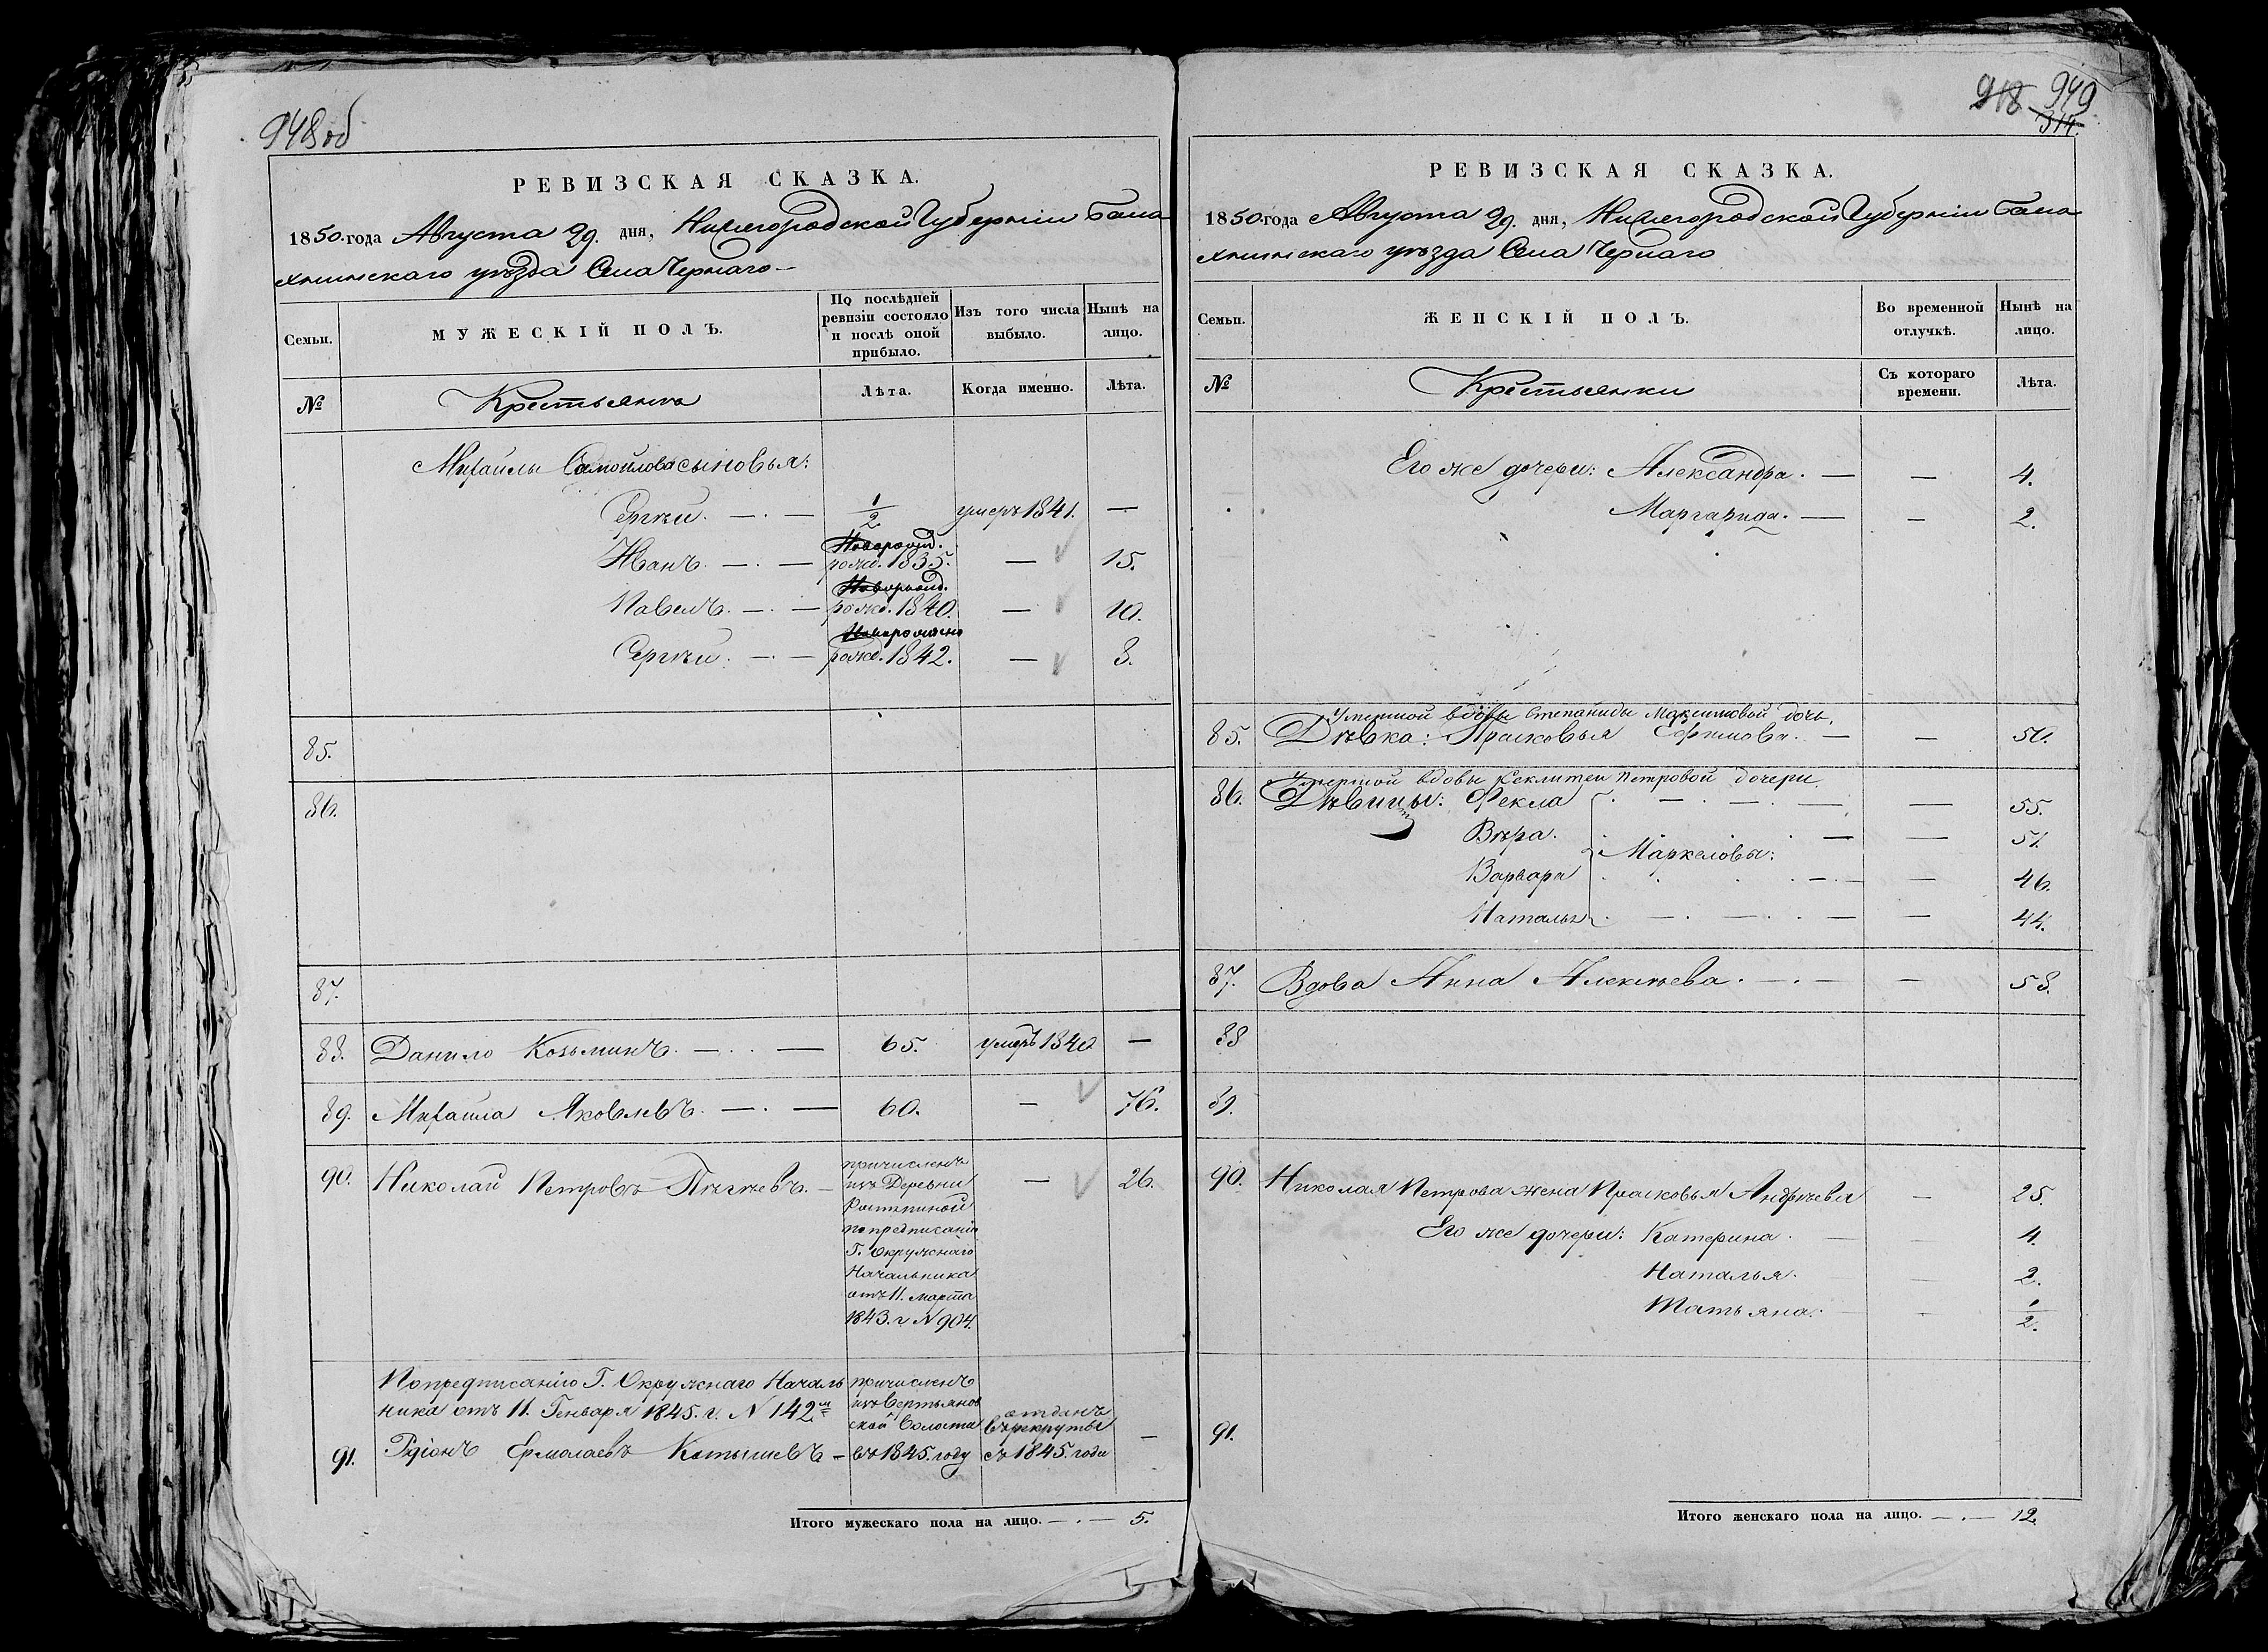 948 об
РЕВИЗСКАЯ СКАЗКА.
1850. года Августа 29. дня, Нижегородской Губерніи Бала
хнинскаго уѣзда Села Чернаго
Семьи.
МУЖЕСКІЙ ПОЛЪ.
По послѣдней ревизіи состояло и послѣ оной прибыло.
Изъ того числа выбыло.
Нынѣ на лицо.
№
Крестьянъ
Лѣта.
Когда именно.
Лѣта.
Михайлы Самойлова сыновья:
Сергѣй. 1/2. умеръ 1841. —
Новорожд.
Иванъ. рожд. 1835. — 15.
Новорожд.
Павелъ. рожд. 1840. — 10.
Новорожден
Сергѣй. рожд. 1842. — 8.
85.
86.
87.
88. Данило Козьминъ. 65. умеръ 1840 —
89. Михайла Яковлевъ. 60. — 76.
90. Николай Петровъ — 26.
причисленъ
изъ Деревни
по предписанію
Г. Окружнаго
Начальника
отъ 11. марта
1843. г. N 904.
По предписанію Г. Окружнаго Началь
ника отъ 11. Генваря 1845. г. N 142м
причисленъ
изъ
ской Волости
отданъ
въ рекруты
91. Родіонъ Ермолаевъ Катышевъ — въ 1845. году съ 1845. года —
Итого мужескаго пола на лицо. — . — 5.
918 949
314.
РЕВИЗСКАЯ СКАЗКА.
1850. года Августа 29. дня, Нижегородской Губерніи Бала
хнинскаго уѣзда Села Чернаго
Семьи.
ЖЕНСКІЙ ПОЛЪ.
Во временной отлучкѣ.
Нынѣ на лицо.
№
Крестьянки
Съ котораго времени.
Лѣта.
Его же дочери: Александра. — — 4.
Маргарида. — — 2.
Умершой вдовы Степаниды Максимовой дочь,
85. Дѣвка: Прасковья Ефимова. — — 50.
Умершой вдовы Петровой дочери
86. Дѣвицы: Фекла — 55.
Вѣра. — 51.
Маркеловы:
Варвара — 46.
Наталья — 44.
87. Вдова Анна Алексѣева. — — 58.
88
89.
90. Николая Петрова жена Прасковья Андрѣева — 25.
Его же дочери: Катерина. 4.
Наталья. 2.
Татьяна. 1/2.
91.
Итого женскаго пола на лицо. — . — 12.